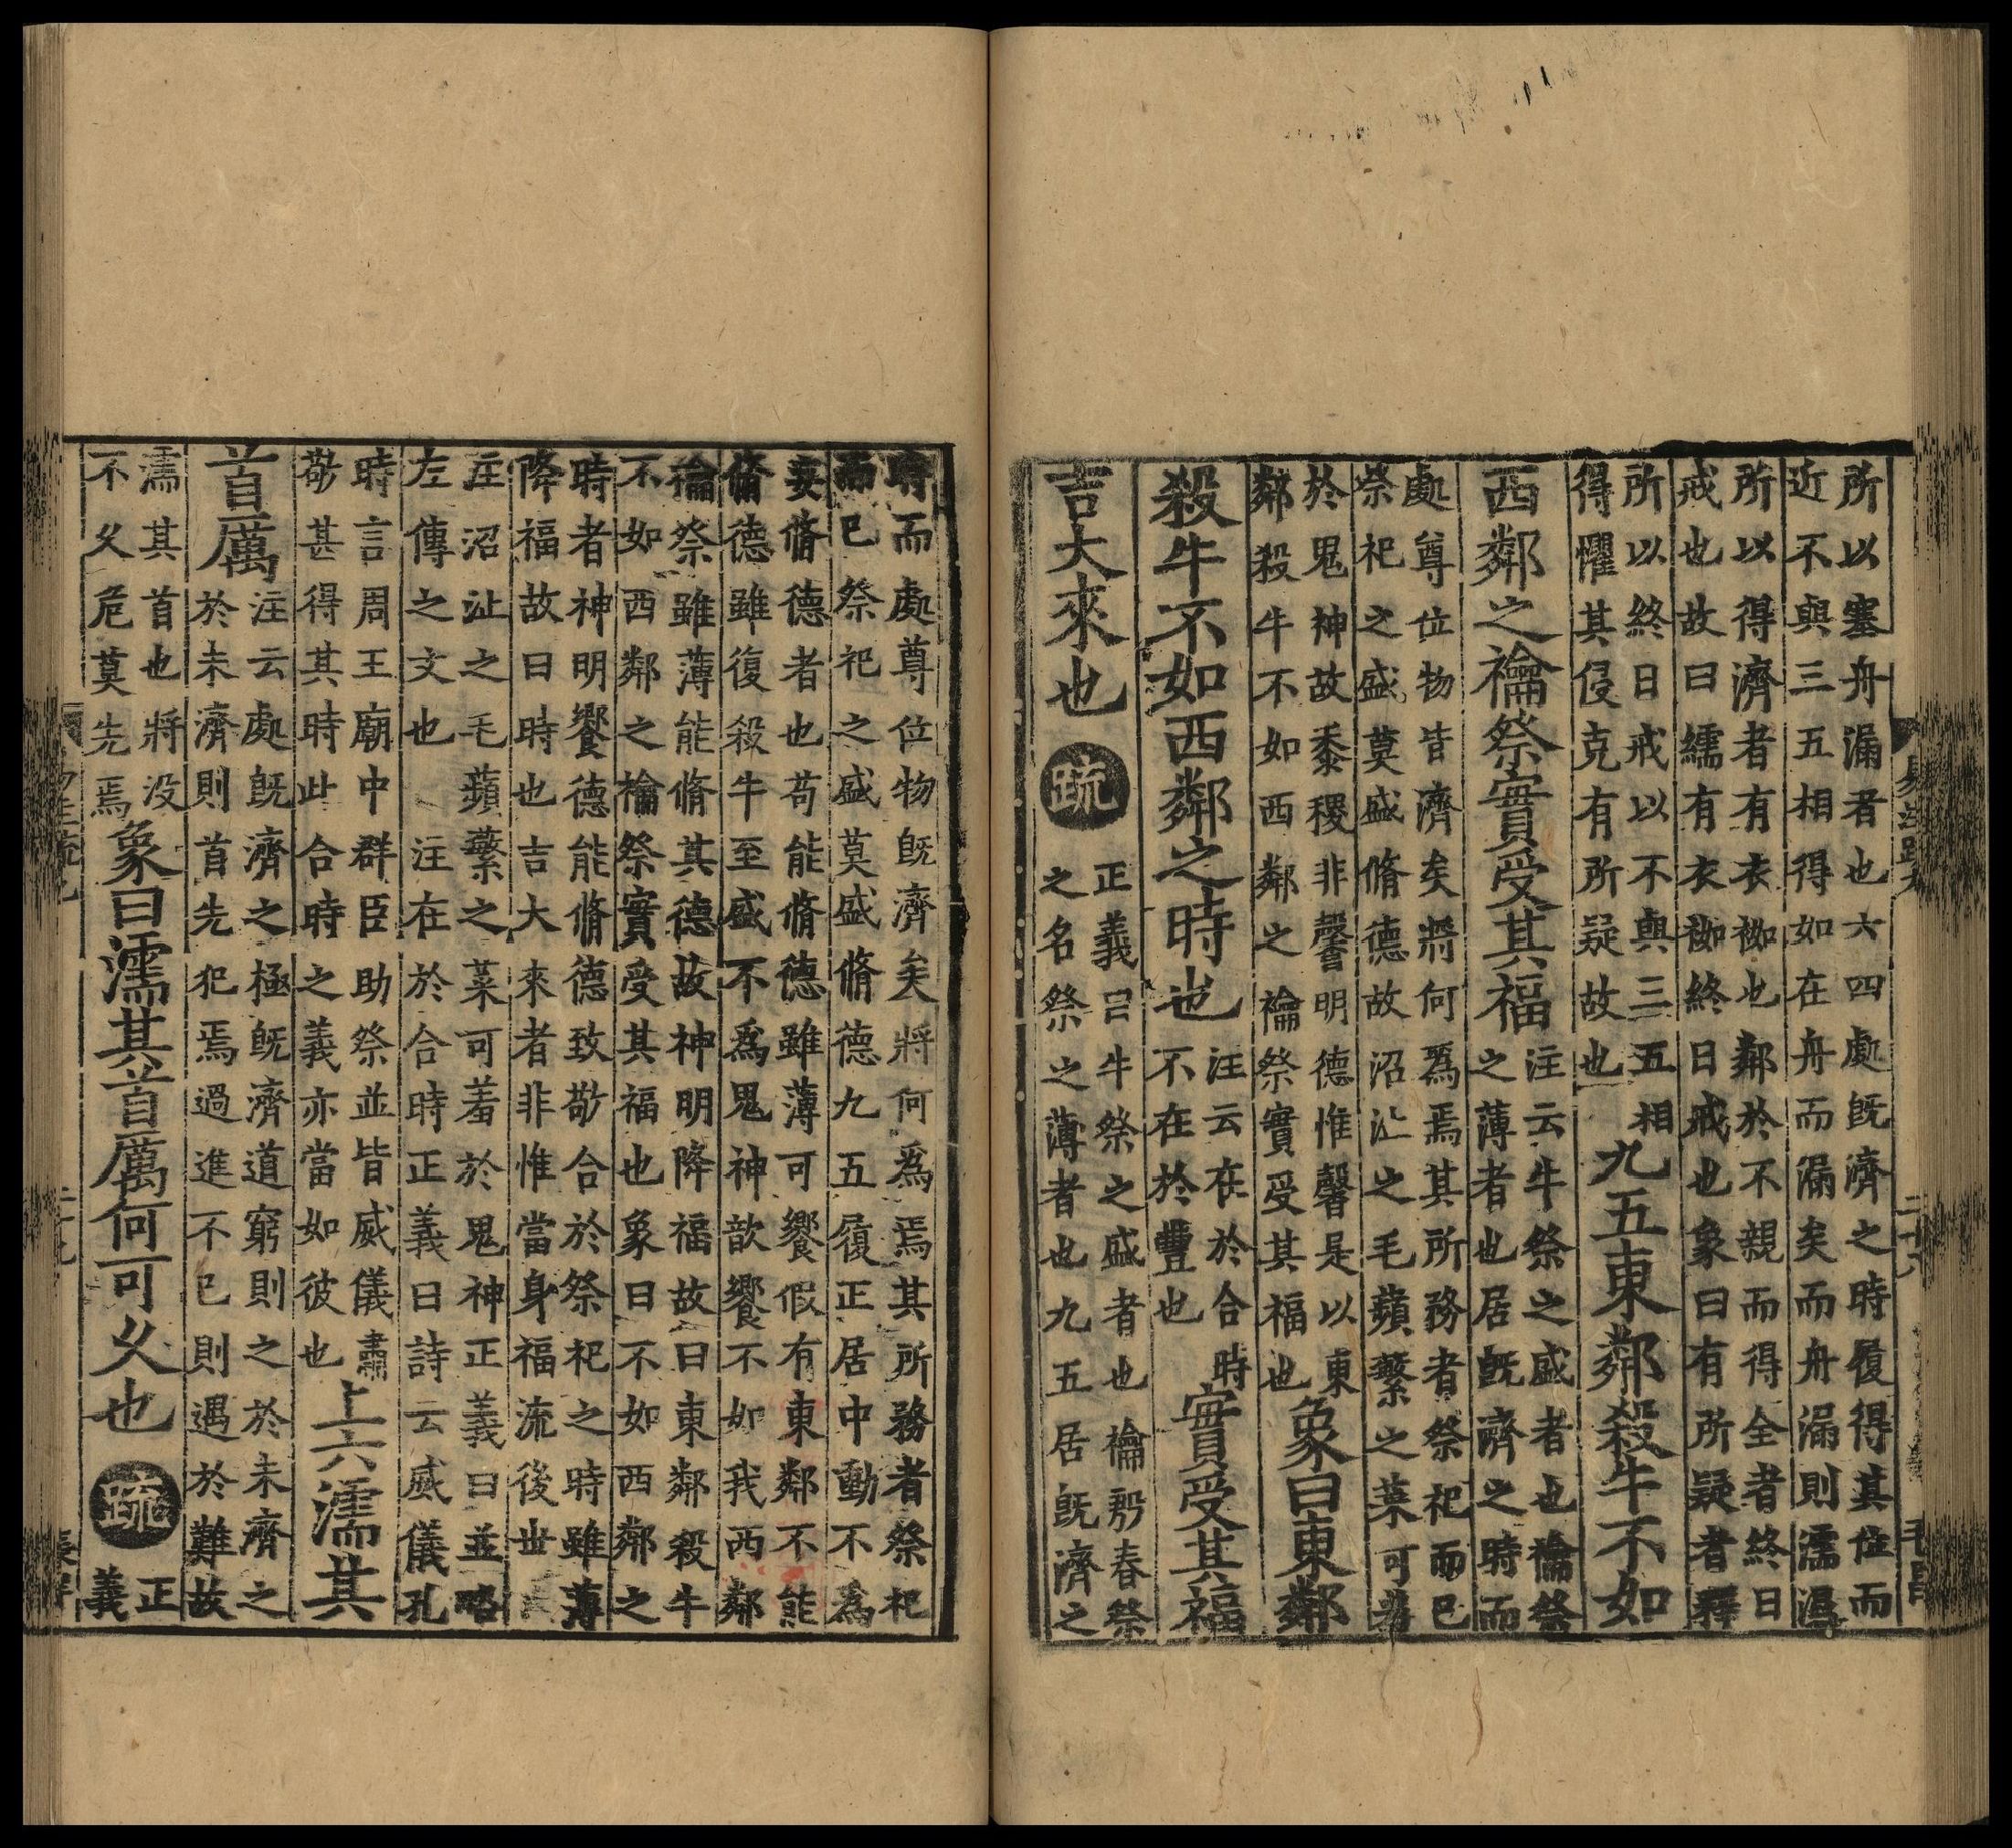 所以塞舟漏者也六四處既濟之時履得其位而
近不與三五相得如在舟而漏矣而舟漏則濡濕
所以得濟者有衣袽也鄰於不親而得全者終日
戒也故曰繻有衣袽終日戒也象曰有所疑者釋
所以終日戒以不與三五相
得懼其侵克有所疑故也
九五東鄰殺牛不如
西鄰之禴祭實受其福
注云牛祭之盛者也禴祭
之薄者也居既濟之時而
處尊位物皆濟矣將何爲焉其所務者祭祀而已
祭祀之盛莫盛脩德故沼沚之毛蘋蘩之菜可羞
於鬼神故黍稷非馨明德惟馨是以東
鄰殺牛不如西鄰之禴祭實受其福也
象曰東鄰
殺牛不如西鄰之時也
注云在於合時
不在於豐也
實受其福
吉大來也
疏
正義曰牛祭之盛者也禴殷春祭
之名祭之薄者也九五居既濟之
時而處尊位物既濟矣將何爲焉其所務者祭祀
而已祭祀之盛莫盛脩德九五履正居中動不爲
妄脩德者也苟能脩德雖薄可饗假有東鄰不能
脩德雖復殺牛至盛不爲鬼神歆饗不如我西鄰
禴祭雖薄能脩其德故神明降福故曰東鄰殺牛
不如西鄰之禴祭實受其福也象曰不如西鄰之
時者神明饗德能脩德致敬合於祭祀之時雖薄
降福故曰時也吉大來者非惟當身福流後世
注沼沚之毛蘋蘩之菜可羞於鬼神正義曰並略
左傳之文也注在於合時正義曰詩云威儀孔
時言周王廟中群臣助祭並皆威儀肅
敬甚得其時此合時之義亦當如彼也
上六濡其
首厲
注云處既濟之極既濟道窮則之於未濟之
於未濟則首先犯焉過進不已則遇於難故
濡其首也將沒
不久危莫先焉
象曰濡其首厲何可久也
疏
正
義